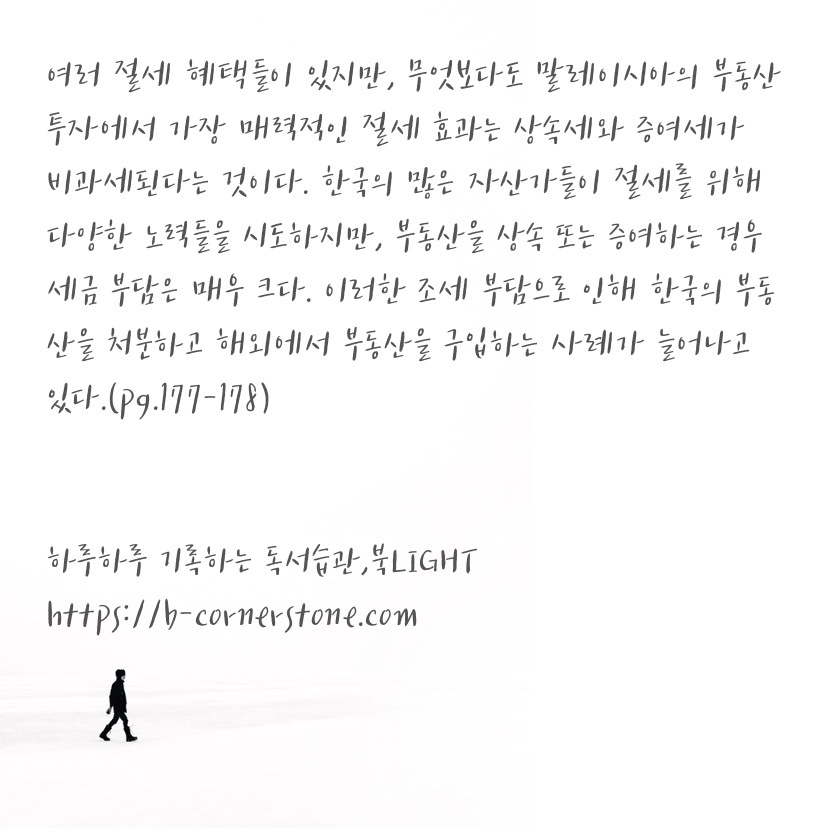 여러 절세 혜택들이 있지만, 무엇보다도 말레이시아의 부동산
투자에서 가장 매력적인 절세 효과는 상속세와 증여세가
비과세된다는 것이다. 한국의 많은 자산가들이 절세를 위해
다양한 노력들을 시도하지만, 부동산을 상속 또는 증여하는 경우
세금 부담은 매우 크다. 이러한 조세 부담으로 인해 한국의 부동
산을 처분하고 해외에서 부동산을 구입하는 사례가 늘어나고
있다.(pg.177-178)
하루하루 기록하는 독서습관,북LIGHT
https://b-cornerstone.com